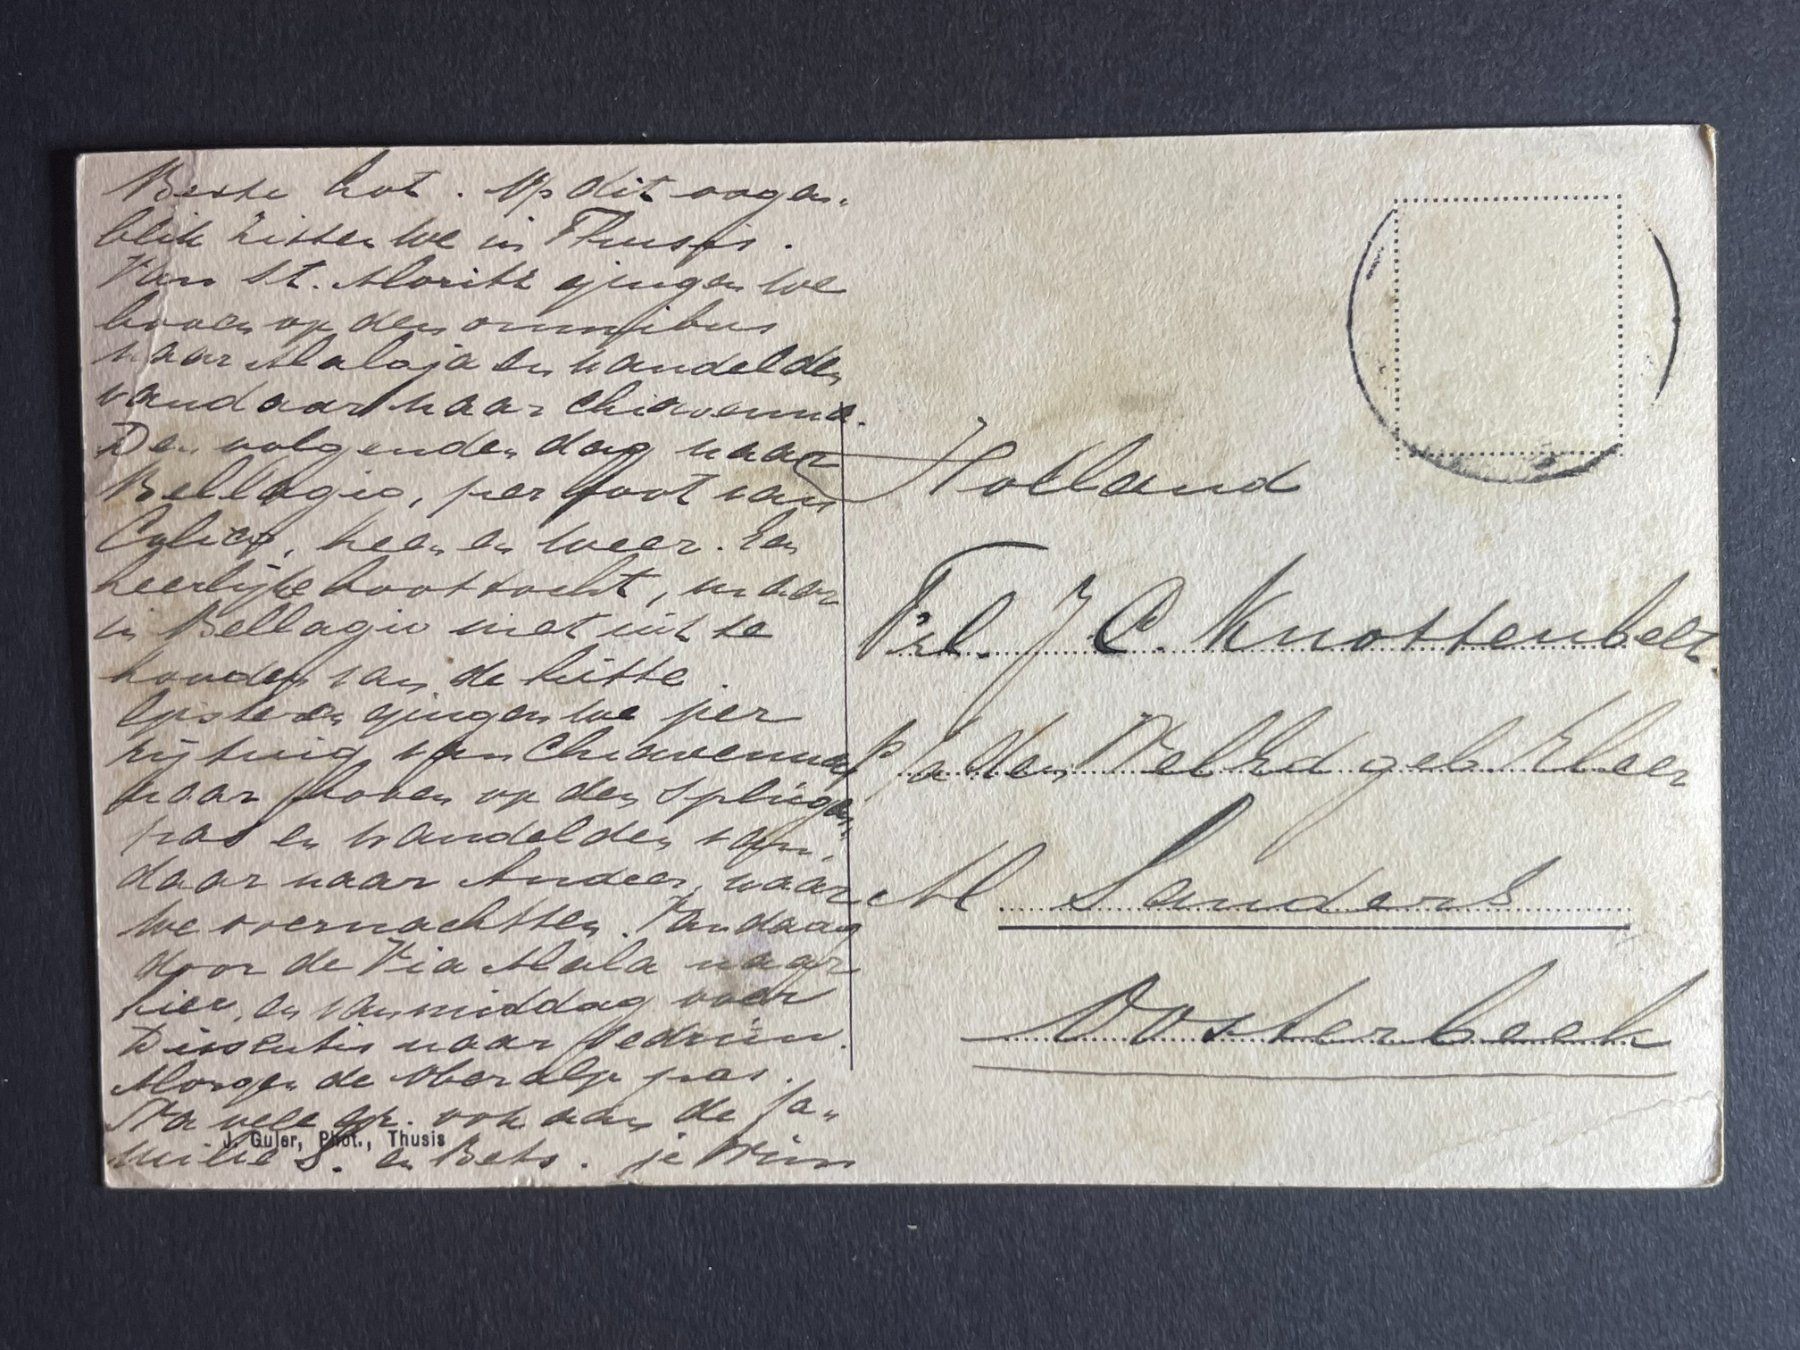 Beste Lot. Op dit oogen-
blik zitten we in Thusis.
Van St. Moritz gingen we
boven op den omnibus
naar Maloja en wandelden
vandaar naar Chiavenna.
Den volgenden dag naar
Bellagio, per boot van
Colico, heen en weer. Een
heerlijke boottocht, maar
in Bellagio niet uit te
houden van de hitte.
Gisteren gingen we per
rijtuig van Chiavenna
naar boven op den Splügen-
pas en wandelden van
daar naar Andeer, waar
we overnachtten. Vandaag
door de Via Mala naar
hier, en vanmiddag over
Dissentis naar Sedrun.
Morgen de Oberalp pas.
Na vele gr. ook aan de fa-
milie S. en Bets. je Wim
J. Guler, Phot., Thusis
Holland
Frl. J C. Knottenbelt
P/a den
M Sanders
Oosterbeek